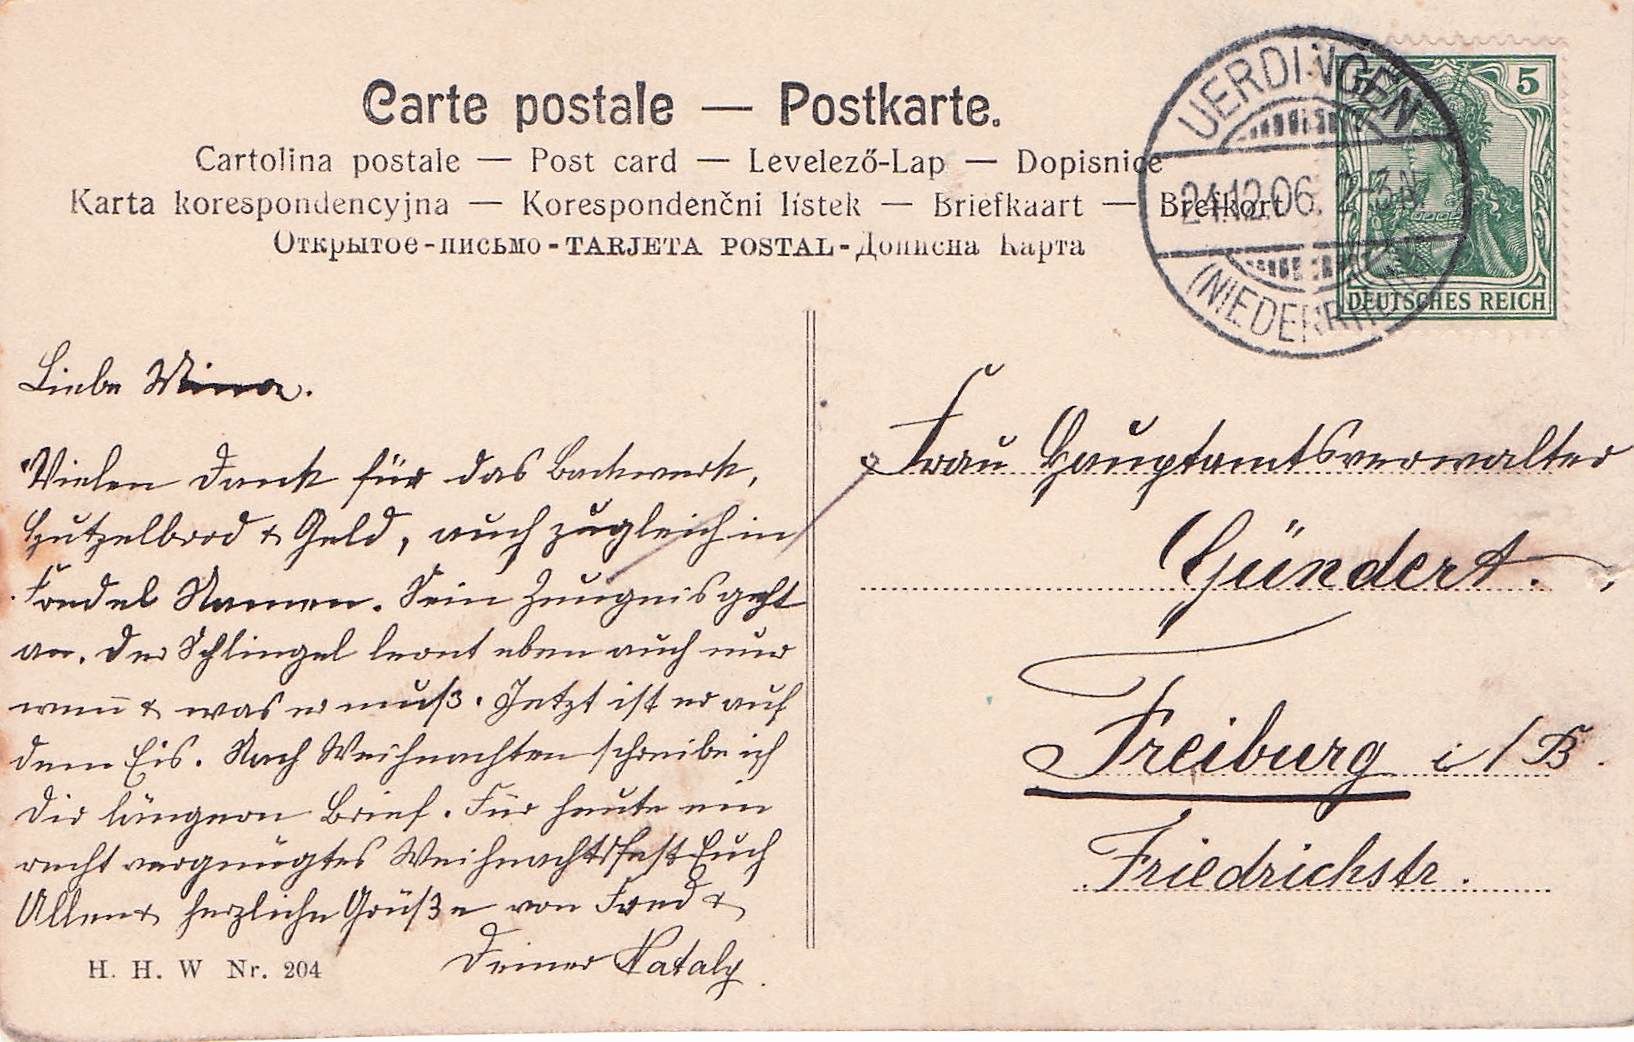 Carte postale — Postkarte.
Cartolina postale — Post card — Levelező-Lap — Dopisnice
Karta korespondencyjna — Korespondenčni listek — Briefkaart — Brefkort
Открытое-письмо-TARJETA POSTAL-Дописна Карта
UERDINGEN
24.12.06. 2-3 N.
(NIEDERRHEIN)
5
DEUTSCHES REICH
Liebe Mina.
Vielen Dank für das Backwerk,
Hutzelbrod & Geld, auch zugleich in
Fredel Namen. Sein Zeugnis geht
an. Der Schlingel lernt eben auch nur
wenn & was er muß. Jetzt ist er auf
dem Eis. Nach Weihnachten schreibe ich
Dir längern Brief. Für heute ein
recht vergnügtes Weihnachtsfest Euch
Allen & herzliche Grüße von Fred &
Deiner Nataly.
H. H. W Nr. 204
Frau Hauptamtsverwalter
Gündert.
Freiburg i/B.
Friedrichstr.